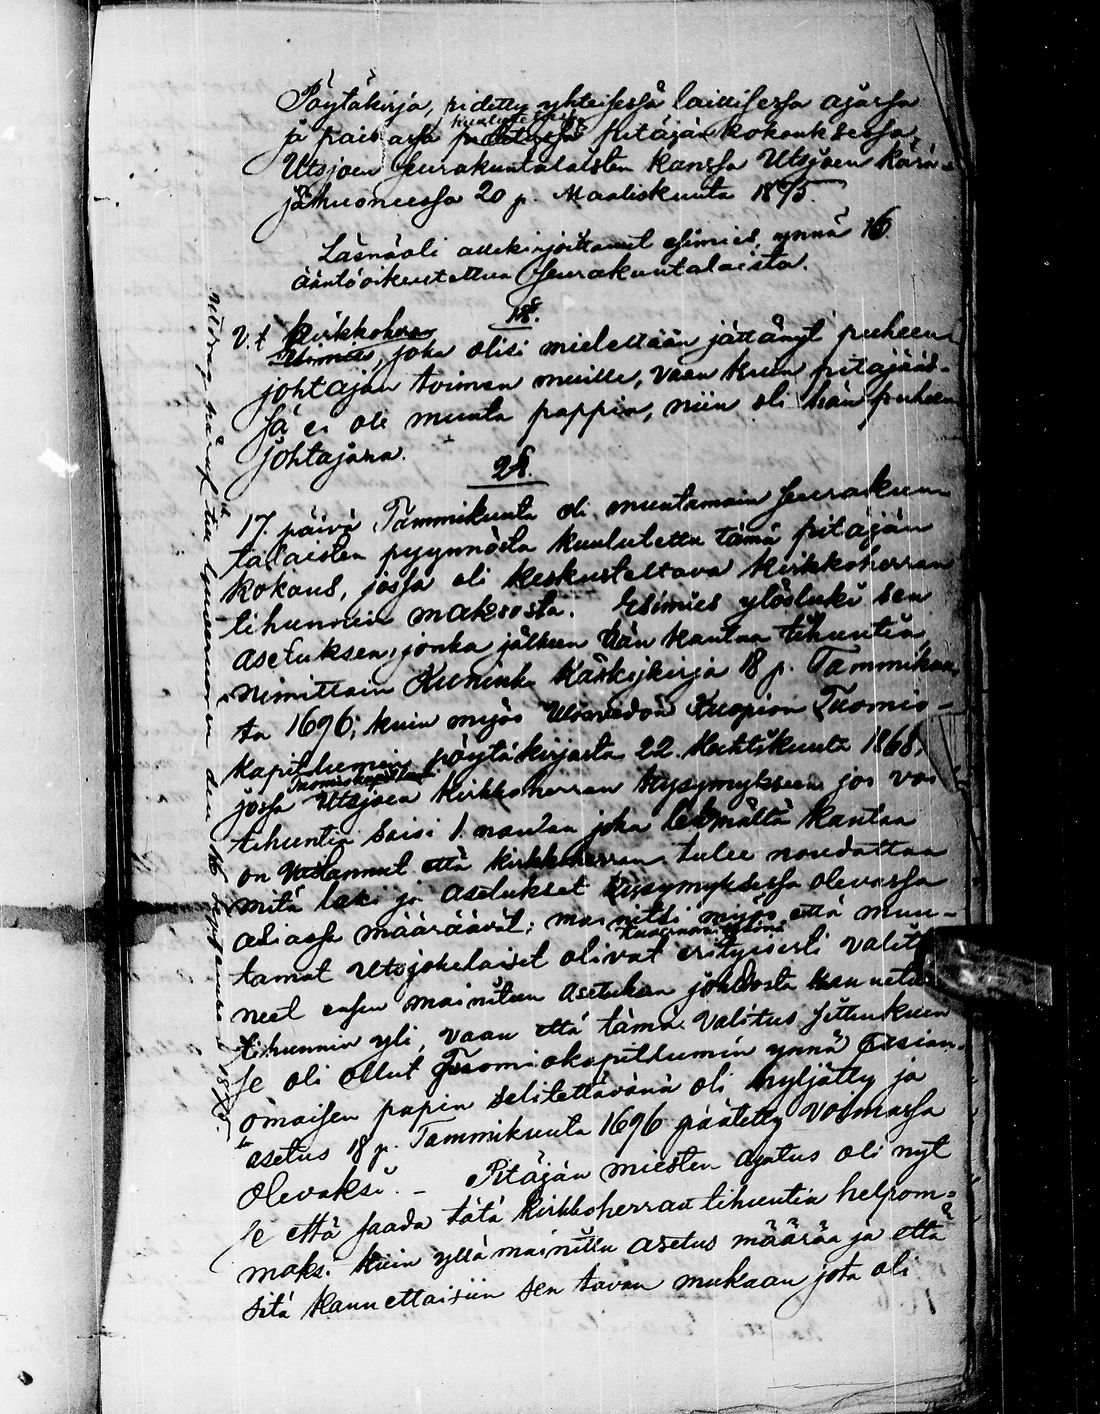 Pöytäkirja, pidetty yhteisessä laillisessa ajassa
ja paikassa kuulutetussa pitäjänkokouksessa
Utsjoen seurakuntalaisten kanssa Utsjoen kärä-
jähuoneessa 20 p. Maaliskuuta 1875.
Läsnäoli allekirjoittanut esimies, ynnä 16.
ääntöoikeutettua seurakuntalaista.
1§.
V. t. kirkkoherra
Esimies, joka olisi mielellään jättänyt puheen
johtajan toimen muille, vaan kuin pitäjääs-
sä ei ole muuta pappia, niin oli hän puheen
johtajana.
2§.
17. päivä Tammikuuta oli muutamain seurakun
talaisten pyynnöstä kuulutettu tämä pitäjän
kokous, jossa oli keskusteltava kirkkoherran
tihunnin maksosta. Esimies ylösluki sen
asetuksen, jonka jälkeen hän kantaa tihuntia,
nimittäin Kuninka Käskykirja 18 p. Tammikuu
ta 1696; kuin myös Ulosvedon Kuopion Tuomio-
kapitlumin pöytäkirjasta 22. Huhtikuuta 1868,
jossa Tuomiokapitlumi Utsjoen kirkkoherran kysymykseen jos vas
tihuntia saisi 1. nautaa joka lehmältä kantaa
on vastannut että kirkkoherran tulee noudattaa
mitä laki ja asetukset kysymyksessä olevassa
asiassa määräävät; mainitsi myös että muu-
tamat Utsjokelaiset olivat erityisesti valitta
neet ensin mainitun asetuksen johdosta kannetun
tihunnin yli, vaan että tämä valitus sittenkuin
se oli ollut Tuomiokapitlumin ynnä asian-
omaisen papin selitettävänä oli hyljätty ja
asetus 18 p. Tammikuuta 1696 päätetty voimassa
olevaksi. - Pitäjän miesten ajatus oli nyt
se että saada tätä kirkkoherran tihuntia helpom-
maksi kuin yllä mainittu asetus määrää ja että
sitä kannettaisiin sen tavan mukaan jota oli